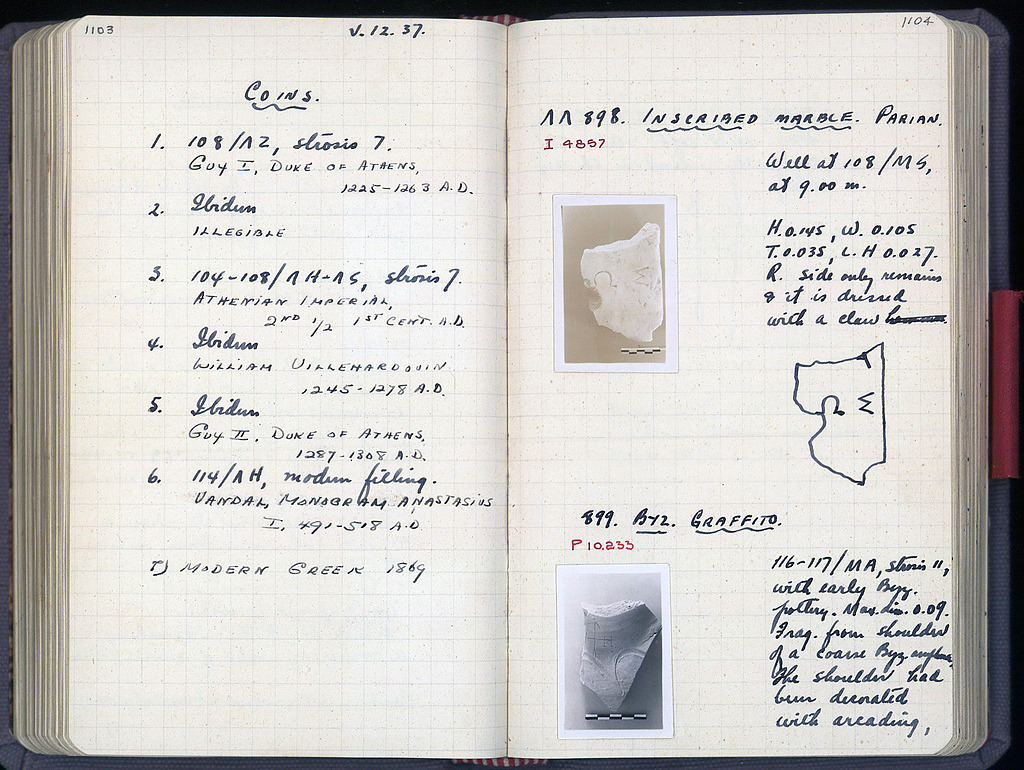 1103
V. 12. 37.
COINS.
1. 108/ΛΖ, strosis 7.
GUY I, DUKE OF ATHENS,
1225-1263 A.D.
2. Ibidum
ILLEGIBLE
3. 104-108/ΛH-ΛS, strosis 7.
ATHENIAN IMPERIAL,
2ND 1/2 1ST CENT. A.D.
4. Ibidum
WILLIAM VILLEHARDOUIN
1245-1278 A.D.
5. Ibidum
GUY II, DUKE OF ATHENS,
1287-1308 A.D.
6. 114/ΛH, modern filling.
VANDAL, MONOGRAM, ANASTASIUS
I, 491-518 A.D.
7) MODERN GREEK 1869
1104
ΛΛ 898. INSCRIBED MARBLE. PARIAN.
I 4857
Well at 108/MS,
at 9.00 m.
H. 0.145, W. 0.105
T. 0.035, L.H 0.027.
R. side only remains
& it is dressed
with a claw
899. BYZ. GRAFFITO.
P 10,233
116-117/MA, strosis 11,
with early Byz.
pottery. Max. dim. 0.09.
Frag. from shoulder
of a coarse Byz. amphora
The shoulder had
been decorated
with arcading,